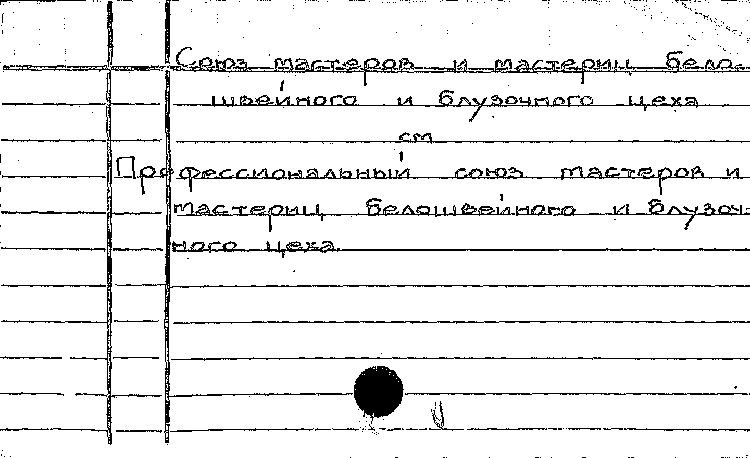 Союз мастеров и мастериц бело-
швейного и блузочного цеха
см
Профессиональный союз мастеров и
мастериц белошвейного и блузоч-
ного цеха.